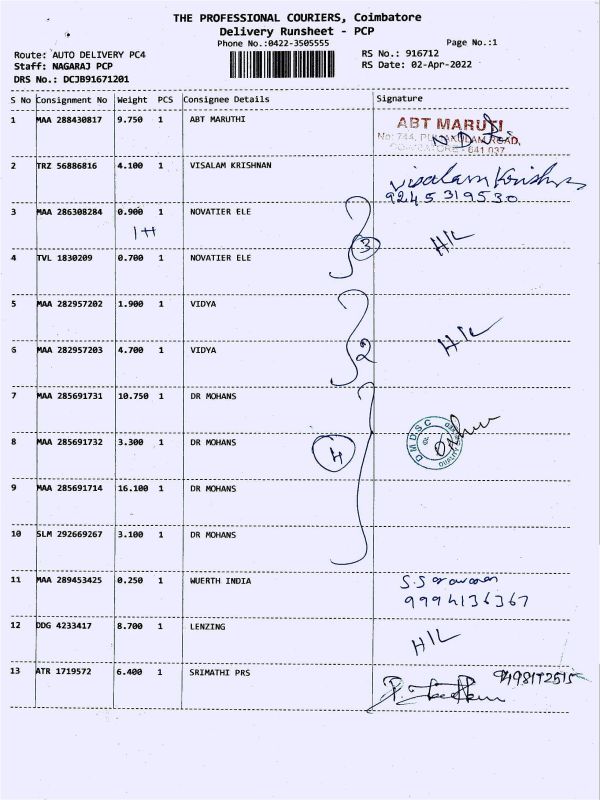 THE PROFESSIONAL COURIERS, Coimbatore
Delivery Runsheet - PCP
Phone No.:0422-3505555 Page No.:1
Route: AUTO DELIVERY PC4 RS No.: 916712
Staff: NAGARAJ PCP RS Date: 02-Apr-2022
DRS No.: DCJB91671201
S No Consignment No Weight PCS Consignee Details Signature
1 MAA 288430817 9.750 1 ABT MARUTHI ABT MARUTI
No: 744, ROAD,
641 037
2 TRZ 56886816 4.100 1 VISALAM KRISHNAN Visalam Krishnan
9245319530
3 MAA 286308284 0.900 1 NOVATIER ELE
1H 3 H/L
4 TVL 1830209 0.700 1 NOVATIER ELE
5 MAA 282957202 1.900 1 VIDYA
2 H/L
6 MAA 282957203 4.700 1 VIDYA
7 MAA 285691731 10.750 1 DR MOHANS
8 MAA 285691732 3.300 1 DR MOHANS 4 DMDSC
9 MAA 285691714 16.100 1 DR MOHANS
10 SLM 292669267 3.100 1 DR MOHANS
11 MAA 289453425 0.250 1 WUERTH INDIA S.Saravanan
9994136367
12 DDG 4233417 8.700 1 LENZING H/L
13 ATR 1719572 6.400 1 SRIMATHI PRS 9498172515